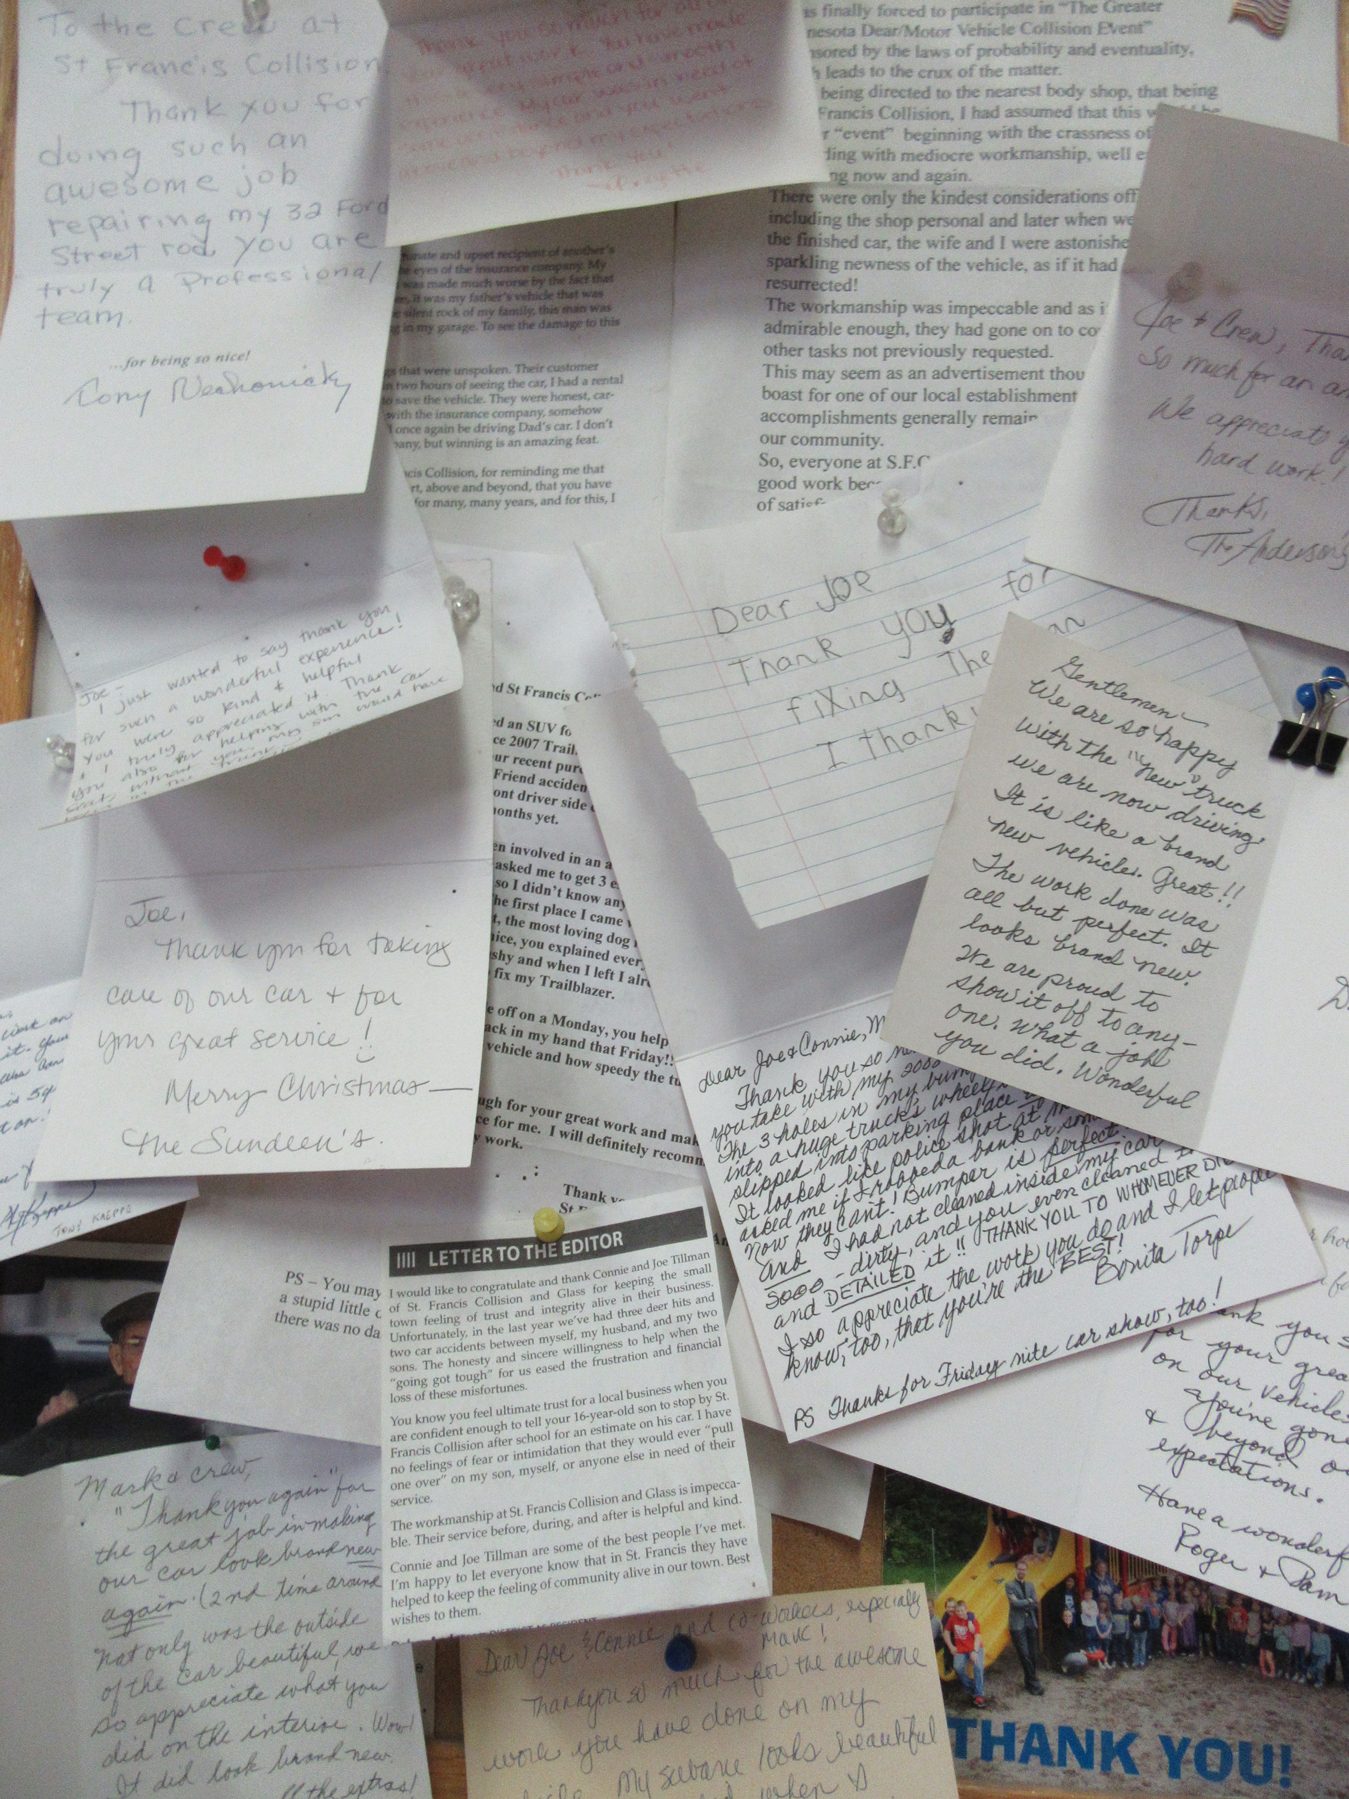 To the Crew at
St Francis Collision
Thank you for
doing such an
awesome job
repairing my 32 Ford
Street rod, you are
truly a Professional
team.
...for being so nice!
Tony
Thank you so much for all of
your great work. You have made
this a very simple and smooth
experience. My car was in need of
some
Thank You!
is finally forced to participate in "The Greater
nesota Dear/Motor Vehicle Collision Event"
sored by the laws of probability and eventuality,
h leads to the crux of the matter.
being directed to the nearest body shop, that being
Francis Collision, I had assumed that this
r "event" beginning with the crassness of
ding with mediocre workmanship, well
ng now and again.
There were only the kindest considerations off
including the shop personal and later when we
the finished car, the wife and I were astonishe
sparkling newness of the vehicle, as if it had
resurrected!
The workmanship was impeccable and as i
admirable enough, they had gone on to co
other tasks not previously requested.
This may seem as an advertisement thou
boast for one of our local establishment
accomplishments generally remain
our community.
So, everyone at S.F.C
good work bec
of satisf
tunate and upset recipient of another's
he eyes of the insurance company. My
was made much worse by the fact that
it was my father's vehicle that was
e silent rock of my family, this man was
g in my garage. To see the damage to this
gs that were unspoken. Their customer
n two hours of seeing the car, I had a rental
o save the vehicle. They were honest, car-
with the insurance company, somehow
I once again be driving Dad's car. I don't
pany, but winning is an amazing feat.
ncis Collision, for reminding me that
rt, above and beyond, that you have
for many, many years, and for this, I
Joe & Crew, Than
So much for an
We appreciate y
hard work!
Thanks,
The Anderson's
Joe -
I just wanted to say thank you
for such a wonderful experience!
You were so kind & helpful
& I truly appreciated it. Thank
you also for helping with the car
seat, without you my son would have
Dear Joe
Thank you for
fixing The
I thank
Gentlemen -
We are so happy
with the "new" truck
we are now driving.
It is like a brand
new vehicle. Great!!
The work done was
all but perfect. It
looks brand new.
We are proud to
show it off to any-
one. What a job
you did. Wonderful
nd St Francis Co
ed an SUV fo
ce 2007 Trail
ur recent pur
Friend acciden
ont driver side
onths yet.
en involved in an a
asked me to get 3 e
so I didn't know any
he first place I came
t, the most loving dog
nice, you explained ever
shy and when I left I alr
fix my Trailblazer.
e off on a Monday, you help
ack in my hand that Friday!!
vehicle and how speedy the tu
ugh for your great work and mak
ce for me. I will definitely recomm
y work.
Thank yo
St F
PS – You may
a stupid little
there was no da
Joe,
Thank you for taking
care of our car & for
your great service!
Merry Christmas -
the Sundeen's.
TONY KAEPPE
Dear Joe & Connie, M
Thank you so
you take with my 2000
The 3 holes in my bum
into a huge truck's wheel
slipped into parking place
It looked like police shot at
asked me if I robbed a bank or
Now they can't! Bumper is perfect.
And I had not cleaned inside my car
Sooo - dirty, and you even cleaned
and DETAILED it!! THANK YOU TO WHOMEVER DI
I so appreciate the work you do and I let people
know, too, that you're the BEST!
Bonita Torpe
PS Thanks for Friday nite car show, too!
LETTER TO THE EDITOR
I would like to congratulate and thank Connie and Joe Tillman
of St. Francis Collision and Glass for keeping the small
town feeling of trust and integrity alive in their business.
Unfortunately, in the last year we've had three deer hits and
two car accidents between myself, my husband, and my two
sons. The honesty and sincere willingness to help when the
"going got tough" for us eased the frustration and financial
loss of these misfortunes.
You know you feel ultimate trust for a local business when you
are confident enough to tell your 16-year-old son to stop by St.
Francis Collision after school for an estimate on his car. I have
no feelings of fear or intimidation that they would ever "pull
one over" on my son, myself, or anyone else in need of their
service.
The workmanship at St. Francis Collision and Glass is impecca-
ble. Their service before, during, and after is helpful and kind.
Connie and Joe Tillman are some of the best people I've met.
I'm happy to let everyone know that in St. Francis they have
helped to keep the feeling of community alive in our town. Best
wishes to them.
ank you s
for your grea
on our vehicles
You're gone
& beyond ou
expectations.
Have a wonderf
Roger & Pam
Mark & crew,
"Thank you again" for
the great job in making
our car look brand new
again. (2nd time around
Not only was the outside
of the car beautiful, we
so appreciate what you
did on the interior. Wow!
It did look brand new.
all the extras!
Dear Joe & Connie and co-workers, especially
Mark!
Thankyou so much for the awesome
work you have done on my
My Subaru looks beautiful
when I
THANK YOU!